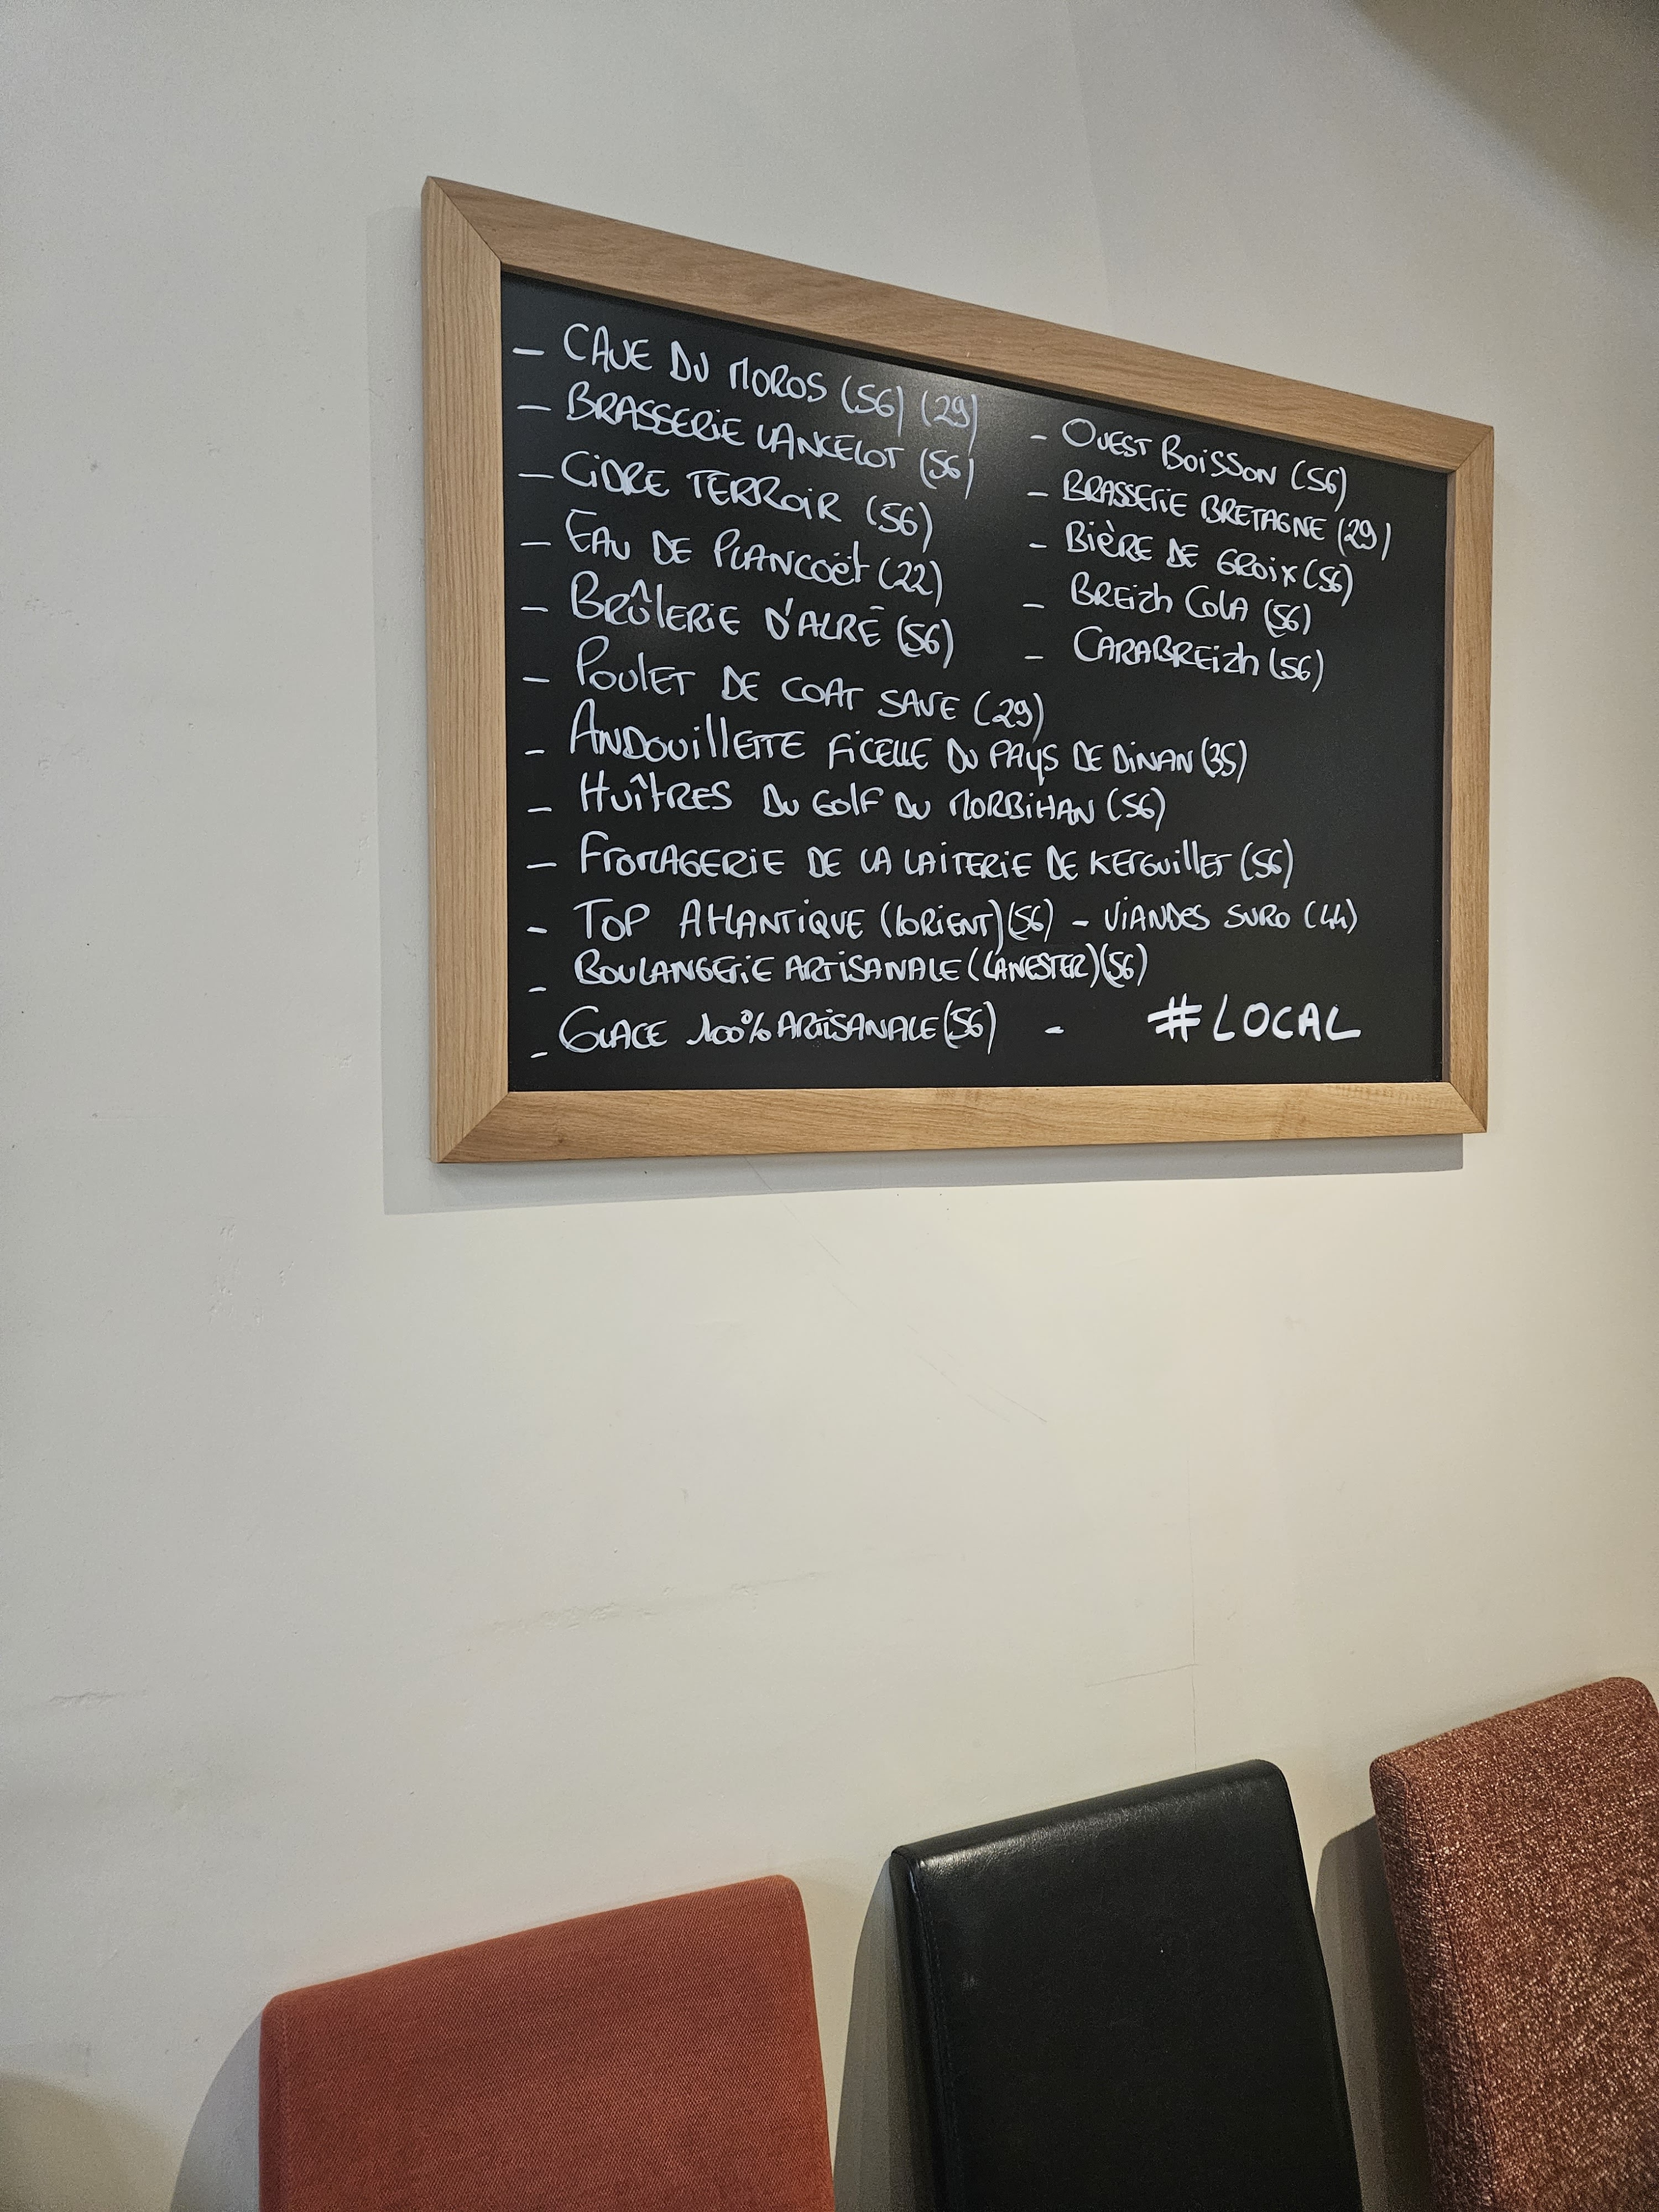 - CAVE DU MOROS (56) (29)
- BRASSERIE LANCELOT (56)
- CIDRE TERROIR (56)
- EAU DE PLANCOËT (22)
- BRÛLERIE D'ALRÉ (56)
- POULET DE COAT SAVE (29)
- ANDOUILLETTE FICELLE DU PAYS DE DINAN (35)
- HUÎTRES DU GOLF DU MORBIHAN (56)
- FROMAGERIE DE LA LAITERIE DE KERGUILLET (56)
- TOP ATLANTIQUE (LORIENT) (56) - VIANDES SURO (44)
- BOULANGERIE ARTISANALE (LANESTER) (56)
- GLACE 100% ARTISANALE (56) -
- OUEST BOISSON (56)
- BRASSERIE BRETAGNE (29)
- BIÈRE DE GROIX (56)
- BREIZH COLA (56)
- CARABREIZH (56)
#LOCAL